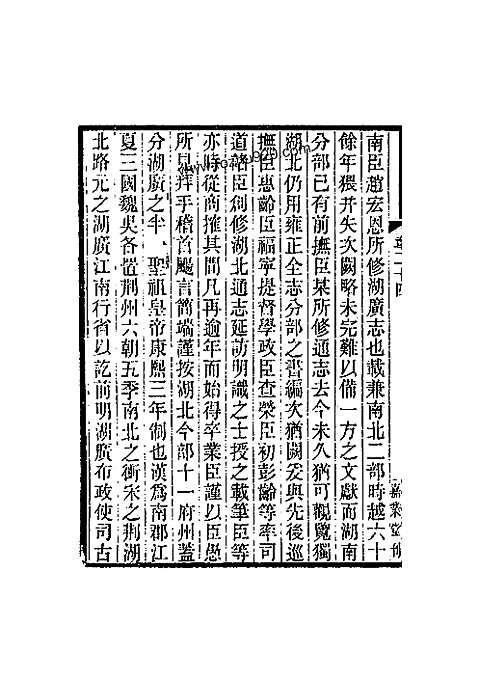 南臣趙宏恩所修湖廣志也載兼南北二部時越六十
餘年猥并失次闕略未完難以備一方之文獻而湖南
分部已有前撫臣某所修通志去今未久猶可觀覽獨
湖北仍用雍正全志分部之書編次猶闕爰與先後巡
撫臣惠齡臣福寧提督學政臣查瑩臣初彭齡等率司
道諸臣創修湖北通志延訪明識之士授之載筆臣等
亦時從商搉其間凡再逾年而始得卒業臣謹以臣愚
所見拜手稽首颺言簡端謹按湖北今部十一府州蓋
分湖廣之半
聖祖皇帝康熙三年制也漢爲南郡江
夏三國魏吳各置荆州六朝五季南北之衝宋之荆湖
北路元之湖廣江南行省以訖前明湖廣布政使司古
嘉業堂刊